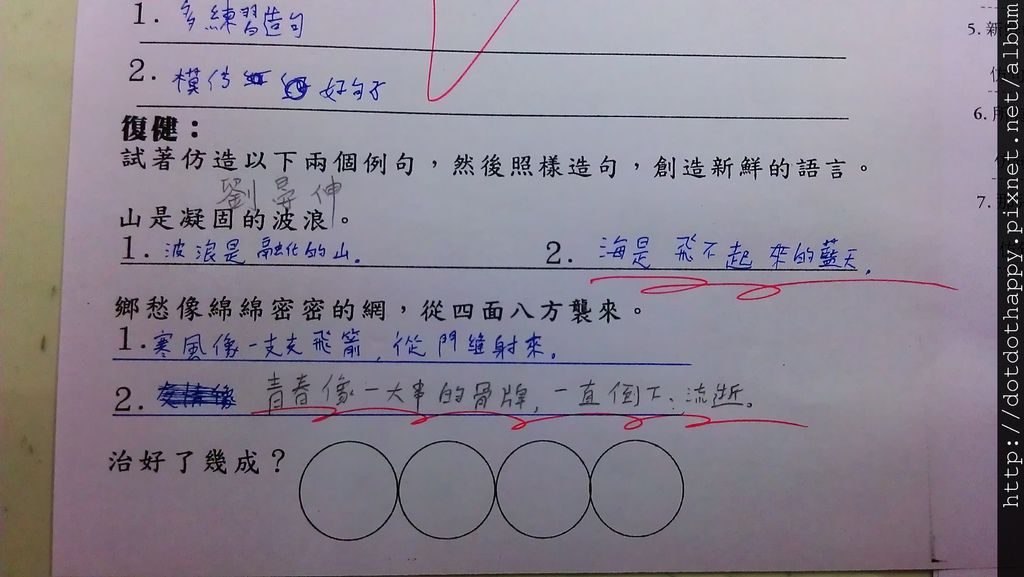 1. 多練習造句
2. 模仿 好句子
復健：
試著仿造以下兩個例句，然後照樣造句，創造新鮮的語言。
劉 伸
山是凝固的波浪。
1. 波浪是融化的山. 2. 海是飛不起來的藍天.
鄉愁像綿綿密密的網，從四面八方襲來。
1. 寒風像一支支飛箭,從門縫射來。
2. 青春像一大串的骨牌,一直倒下、流逝。
治好了幾成？
5. 新
6. 所
7.
http://dotdothappy.pixnet.net/album